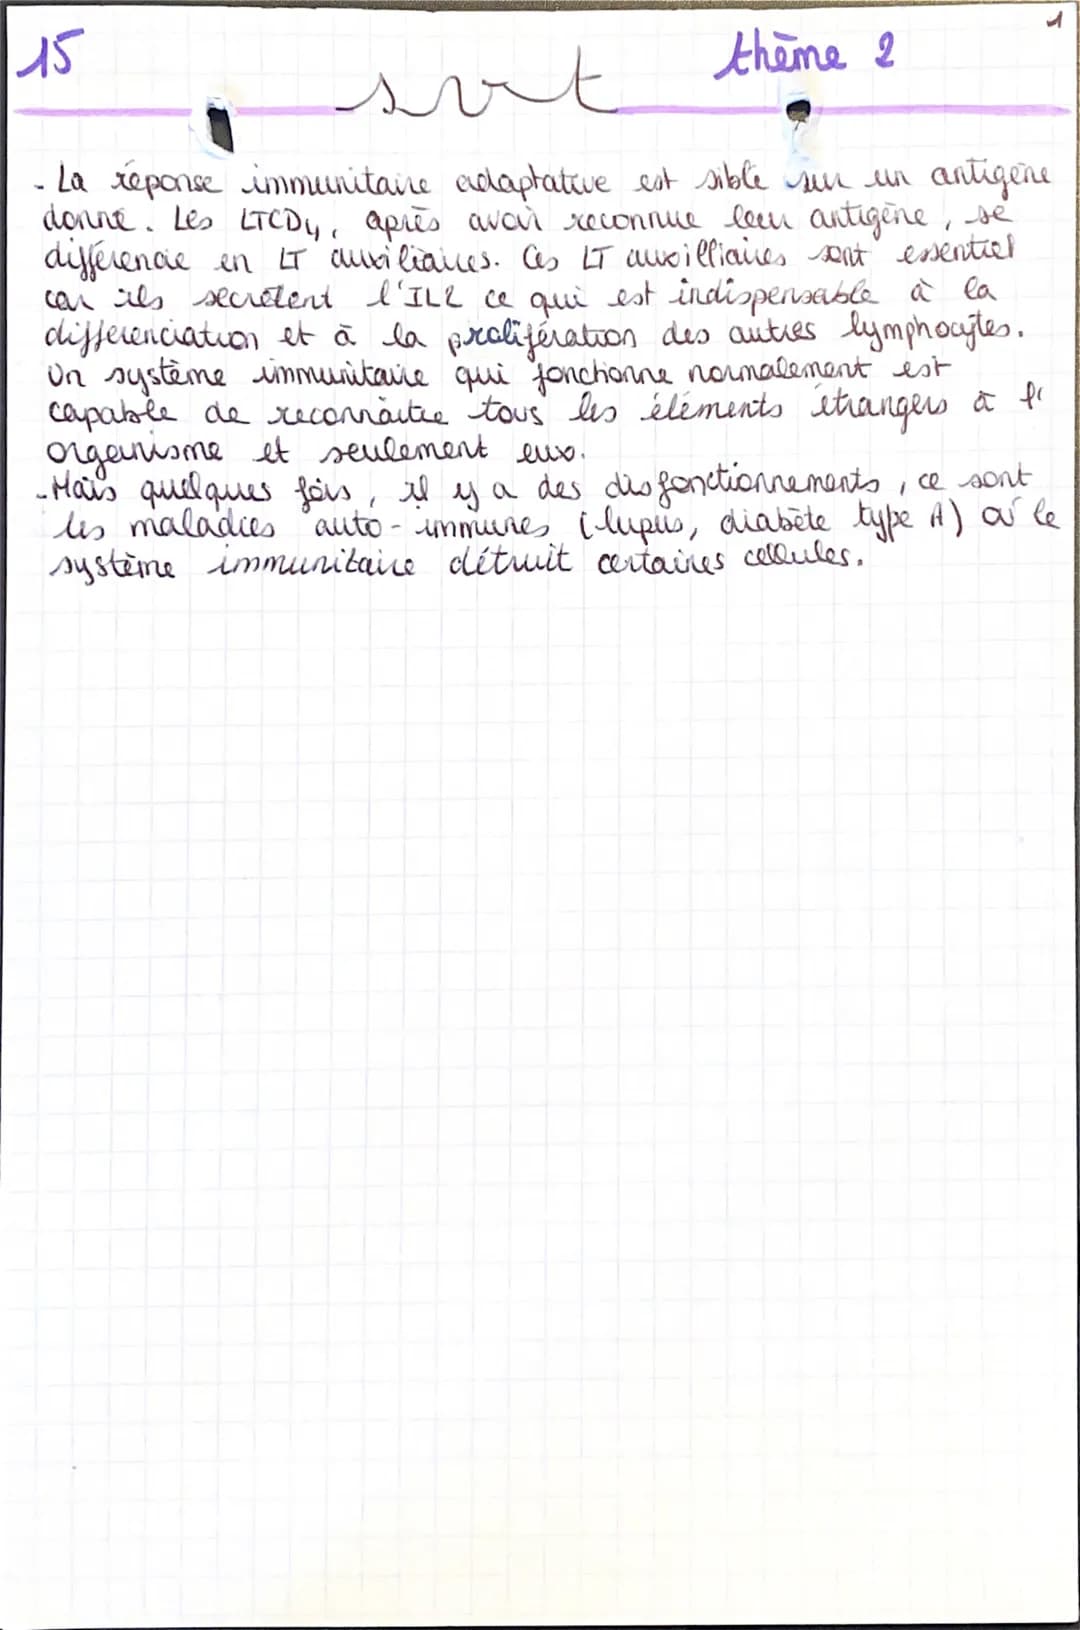 1
15
thème 2
svt
- La réponse immunitaire adaptative est sible sur un antigène
donné. Les LTCD4, après avoir reconnue leur antigène, se
différencie en LT auxiliaires. Ces LT auxilliaires sont essentiel
car ils secrètent l'IL2 ce qui est indispensable à la
différenciation et à la prolifération des autres lymphocytes.
Un système immunitaire qui fonctionne normalement est
capable de reconnaitre tous les éléments étrangers à l'
organisme et seulement eux.
- Mais quelques fois, il y a des disfonctionnements, ce sont
les maladies auto-immunes (lupus, diabète type 1) où le
système immunitaire détruit certaines cellules.